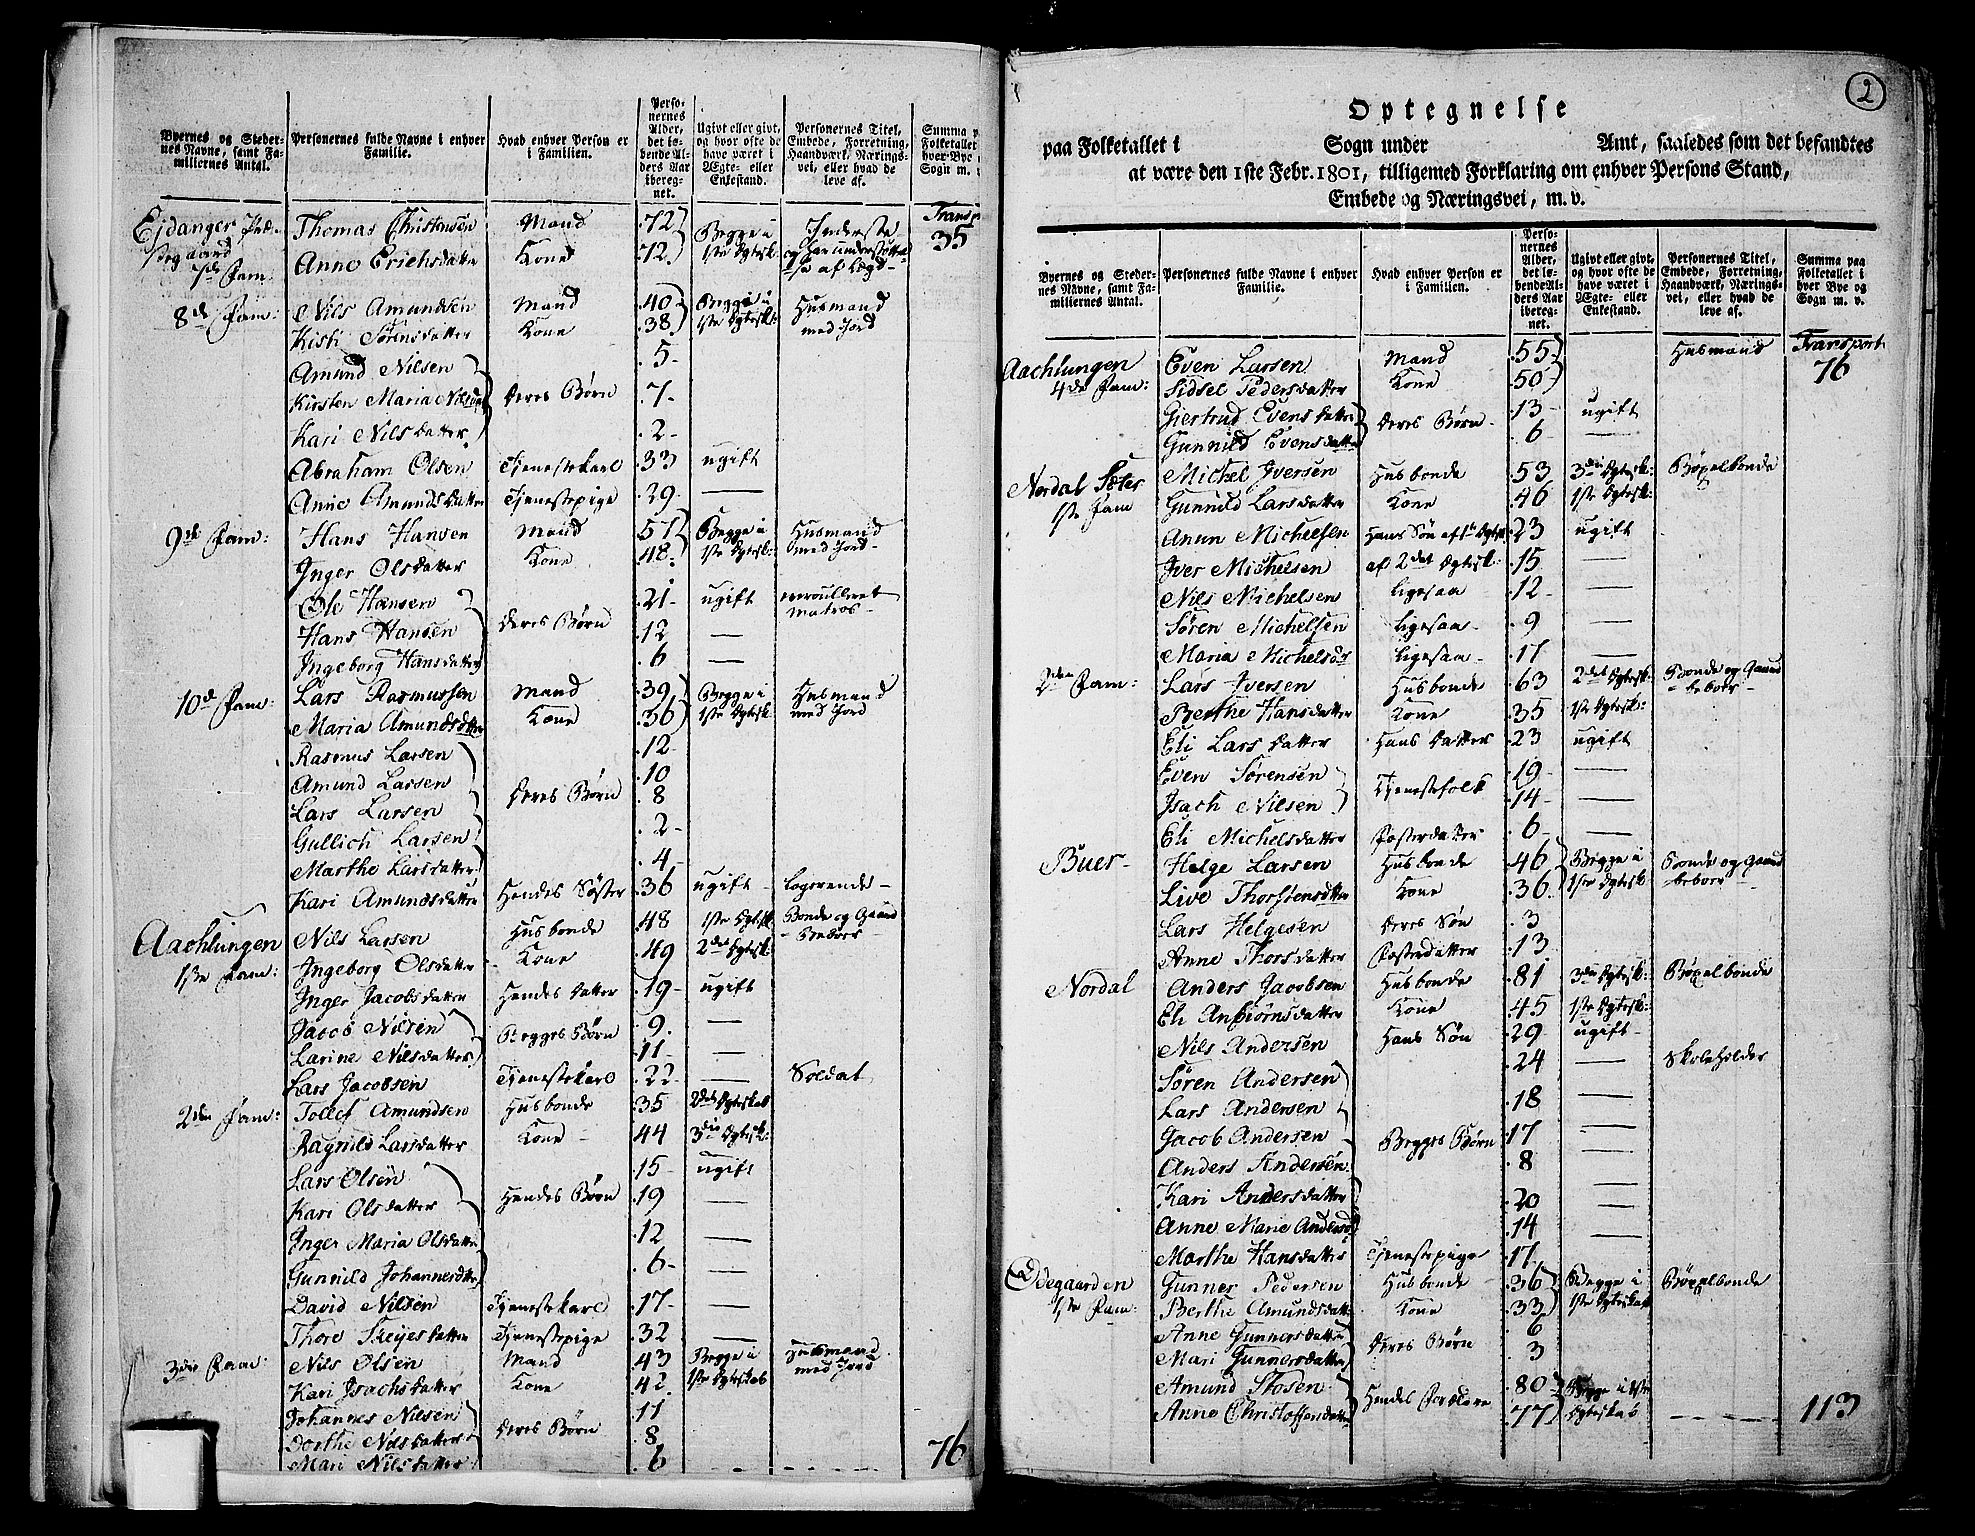 Byernes og Stedernes Navne, samt Familiernes Antal. | Personernes fulde Navne i enhver Familie. | Hvad enhver Person er i Familien. | Personernes Alder, det løbende Alders Aar iberegnet. | Ugivt eller givt, og hvor ofte de have været i Ægte- eller Enkestand. | Personernes Titel, Embede, Forretning, Haandværk, Næringsvei, eller hvad de leve af. | Summa paa Folketallet hver Bye Sogn m.
Transp
Ejdanger Præ- Thomas Christensen Mand 72 Begge i Inderste 35
stegaard Anne Erichsdatter Kone 72 1ste Ægtesk.
7de Fam:
8de Fam: Nils Amundsen Mand 40 Begge i Husmand
Kisti Sørensdatter Kone 38 1ste Ægtesk: med Jord
Amund Nilsen 5
Kirsten Maria Nilsdatt Deres Børn 7
Kari Nilsdatter 2
Abraham Olsen Tjenestekarl 33 ugift
Anne Amundsdatter Tjenestepige 29 —
9de Fam: Hans Hansen Mand 57 Begge i Husmand
Inger Olsdatter Kone 48 1ste Ægtesk: med Jord
Ole Hansen 21 ugift enroulleret matros
Hans Hansen Deres Børn 12 —
Ingeborg Hansdatter 6 —
10de Fam: Lars Rasmussen Mand 39 Begge i Husmand
Maria Amundsdtter Kone 36 1ste Ægtesk: med Jord
Rasmus Larsen 12
Amund Larsen 10
Lars Larsen Deres Børn 8
Gullich Larsen 2
Marthe Larsdatter 4
Kari Amundsdatter Hendes Søster 36 ugift Logerende
Aachlungen Nils Larsen Husbonde 48 1ste Ægtesk Bonde og Gaard
1ste Fam: Ingeborg Olsdatter Kone 49 2det Ægtesk: Beboer
Inger Jacobsdatter Hendes Datter 19 ugift
Jacob Nilsen Begges Børn 9 —
Larine Nilsdatter 11 —
Lars Jacobsen Tjenestekarl 22 — Soldat
2den Fam: Tollef Amundsen Husbonde 35 2det Ægteskab
Ragnild Larsdatter Kone 44 3die Ægtesk:
Lars Olsen 15 ugift
Kari Olsdatter Hendes Børn 19 —
Inger Maria Olsdatter 12 —
Gunnild Johannesdtter 6 —
David Nilsen Tjenestekarl 17 —
Thore Treyesdatter Tjenestepige 32 —
3die Fam: Nils Olsen Mand 43 Begge i Husmand
Kari Isachsdatter Kone 42 1ste Ægteskab med Jord
Johannes Nilsen 11
Dorthe Nilsdatter Deres Børn 8
Mari Nilsdatter 6 76
2
Optegnelse
paa Folketallet i Sogn under Amt, saaledes som det befandtes
at være den 1ste Febr. 1801, tilligemed Forklaring om enhver Persons Stand,
Embede og Næringsvei, m. v.
Byernes og Stedernes Navne, samt Familiernes Antal. | Personernes fulde Navne i enhver Familie. | Hvad enhver Person er i Familien. | Personernes Alder, det løbende Alders Aar iberegnet. | Ugivt eller givt, og hvor ofte de have været i Ægte- eller Enkestand. | Personernes Titel, Embede, Forretning, Haandværk, Næringsvei, eller hvad de leve af. | Summa paa Folketallet i hver Bye og Sogn m. v.
Aachlungen Even Larsen Mand 55 Husmand Transport
4de Fam: Sidsel Pedersdatter Kone 50 76
Giertrud Evensdatter Deres Børn 13 ugift
Gunnild Evensdatter 6 —
Nordal Sæter Michel Iversen Husbonde 53 3die Ægtesk: Bøxelbonde
1ste Fam Gunnild Larsdatter Kone 46 1ste Ægtesk:
Anun Michelsen Hans Søn af 1te Ægtesk 23 ugift
Iver Michelsen af 2det Ægtesk: 15 —
Nils Michelsen Ligesaa 12 —
Søren Michelsen Ligesaa 9 —
Maria Michelsdr Ligesaa 17 —
2den Fam: Lars Iversen Husbonde 63 2det Ægtesk: Bonde og Gaard
Berthe Hansdatter Kone 35 1ste Ægtesk: beboer
Eli Larsdatter Hans Datter 23 ugift
Even Sørensen Tjenestefolk 19 —
Isach Nilsen 14 —
Eli Michelsdatter Fosterdatter 6 —
Buer Helge Larsen Husbonde 46 Begge i Bonde og Gaard
Live Thorstensdtter Kone 36 1ste Ægtesk beboer
Lars Helgesen Deres Søn 3
Anne Thorsdatter Fosterdatter 13
Nordal Anders Jacobsen Husbonde 81 3die Ægtesk: Bøxelbonde
Eli Anbiørnsdatter Kone 45 1ste Ægtesk:
Nils Andersen Hans Søn 29 ugift
Søren Andersen 24 — Skoleholder
Lars Andersen 18 —
Jacob Andersen Begges Børn 17 —
Anders Andersen 8 —
Kari Andersdatter 20 —
Anne Marie Andersd 14 —
Marthe Hansdatter Tjenestepige 17 —
Ødegaarden Gunner Pedersen Husbonde 36 Begge i Bøxelbonde
1ste Fam: Berthe Amundsdatter Kone 33 1ste Ægteskab
Anne Gunnersdatter Deres Børn 6
Mari Gunnersdatter 3
Amund Stosen Hendes Forældre 80 Begge i 1ste
Anne Christoffersdatter 77 Ægteskab 113